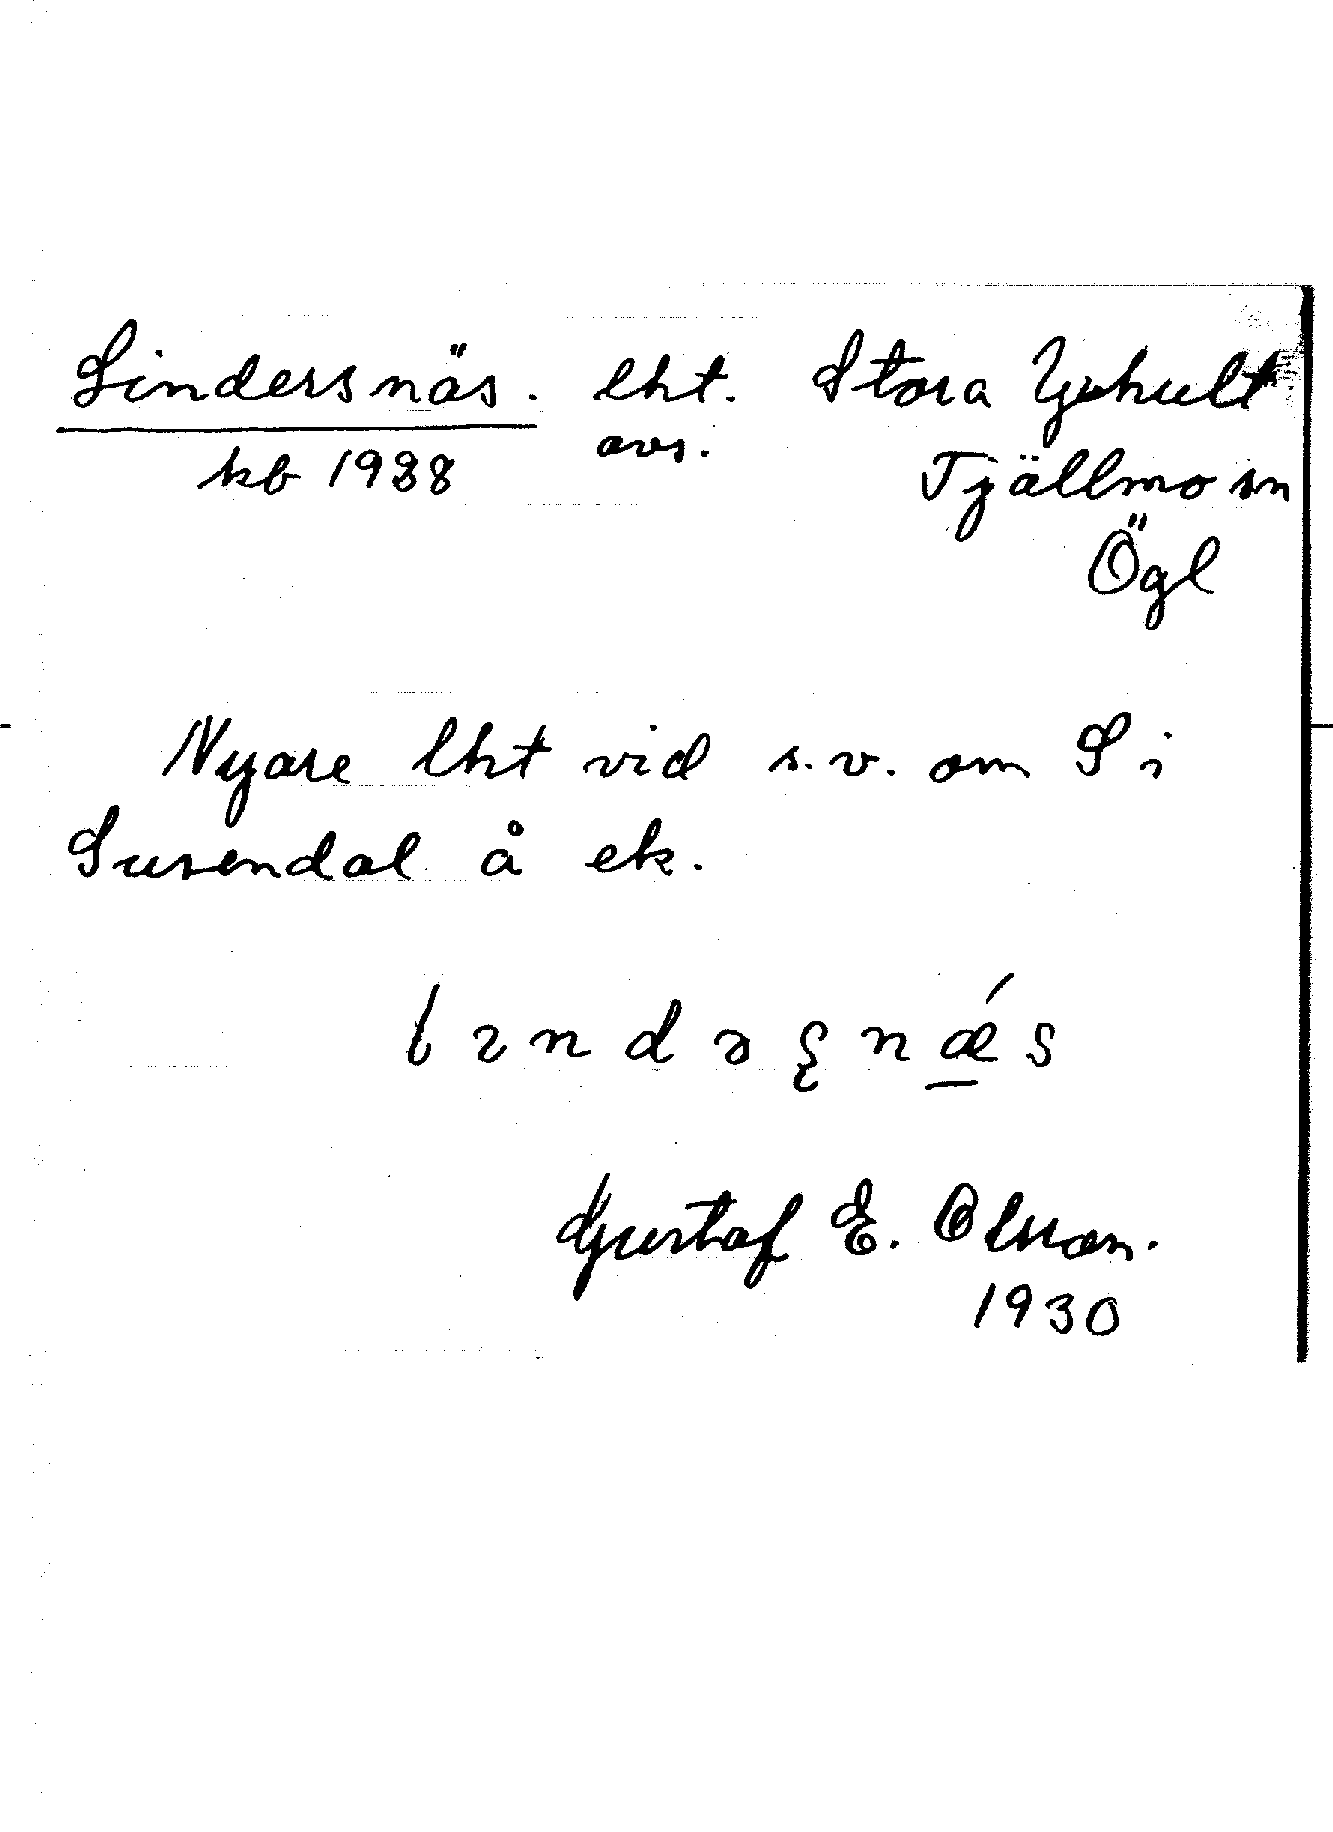 Lindersnäs. lht. Stora Yxhult
kb avs. Tjällmo sn
Ögl
Nyare lht vid s.v. om S i
Susendal å ek.
lındəʂnǽs
Gustaf E. Olsson.
1930